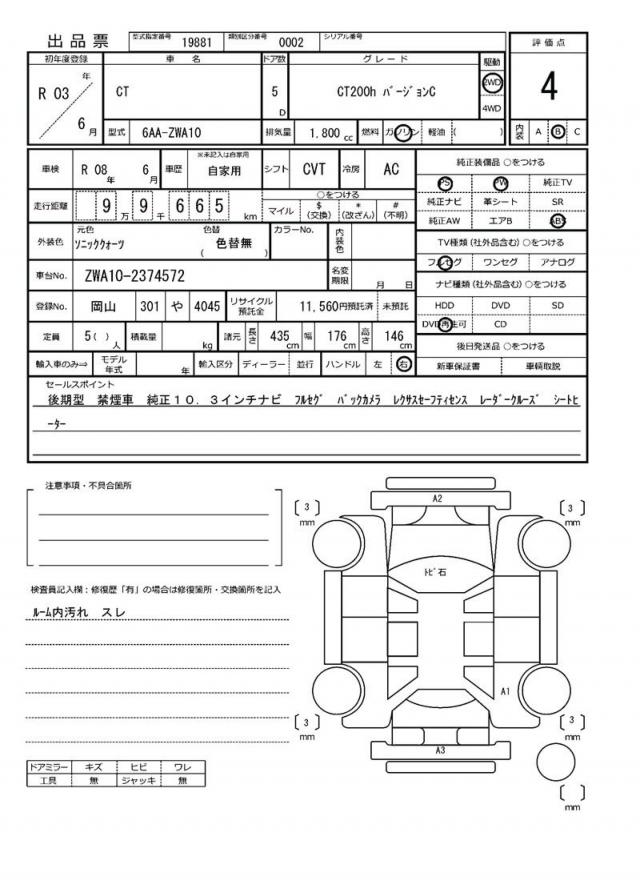 出品票 型式指定番号 19881 類別区分番号 0002 シリアル番号
初年度登録 車名 ドア数 グレード 駆動 評価点
R 03 年 6 月 CT 5 D CT200h バージョンC 2WD 4WD 4
型式 6AA-ZWA10 排気量 1,800 cc 燃料 ガソリン 軽油 ( ) 内装 A B C
車検 R 08 年 6 月 車歴 ※未記入は自家用 自家用 シフト CVT 冷房 AC
走行距離 9 万 9 千 6 6 5 km ○をつける マイル $ (交換) * (改ざん) # (不明)
外装色 元色 ソニッククォーツ 色替 ( 色替無 ) カラーNo. 内装色
車台No. ZWA10-2374572 名変期限 月 日
登録No. 岡山 301 や 4045 リサイクル預託金 11,560円預託済 未預託
定員 5( ) 人 積載量 kg 諸元 長さ 435 cm 幅 176 cm 高さ 146 cm
輸入車のみ⇒ モデル年式 年 輸入区分 ディーラー 並行 ハンドル 左 右
純正装備品 ○をつける
PS PW 純正TV
純正ナビ 革シート SR
純正AW エアB ABS
TV種類(社外品含む)○をつける
フルセグ ワンセグ アナログ
ナビ種類(社外品含む)○をつける
HDD DVD SD
DVD再生可 CD
後日発送品 ○をつける
新車保証書 車輌取説
セールスポイント
後期型 禁煙車 純正10.3インチナビ フルセグ バックカメラ レクサスセーフティセンス レーダークルーズ シートヒ
ーター
注意事項・不具合箇所
検査員記入欄:修復歴「有」の場合は修復箇所・交換箇所を記入
ルーム内汚れ スレ
ドアミラー キズ ヒビ ワレ
工具 無 ジャッキ 無
A2
[ 3 ] mm [ 3 ] mm
トビ石
A1
[ 3 ] mm [ 3 ] mm
A3
[ ] mm